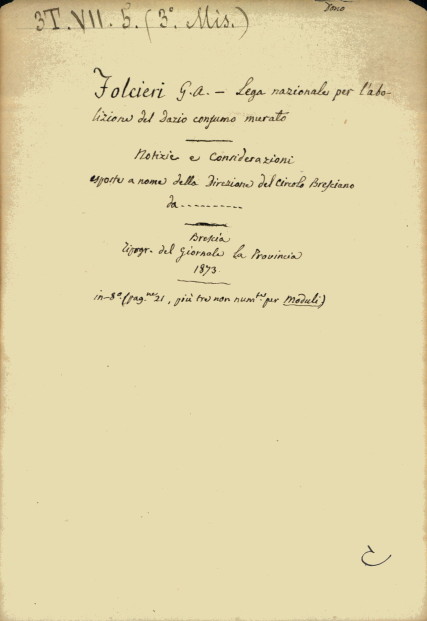 Dono
3T. VII. 5. (3º. Mis.)
Folcieri G. A. — Lega nazionale per l'abo-
lizione del dazio consumo murato
Notizie e Considerazioni
esposte a nome della Direzione del Circolo Bresciano
da ----------
Brescia
Tipogr. del Giornale la Provincia
1873.
in-8º (pag.ne 21, più tre non num.te per Moduli)